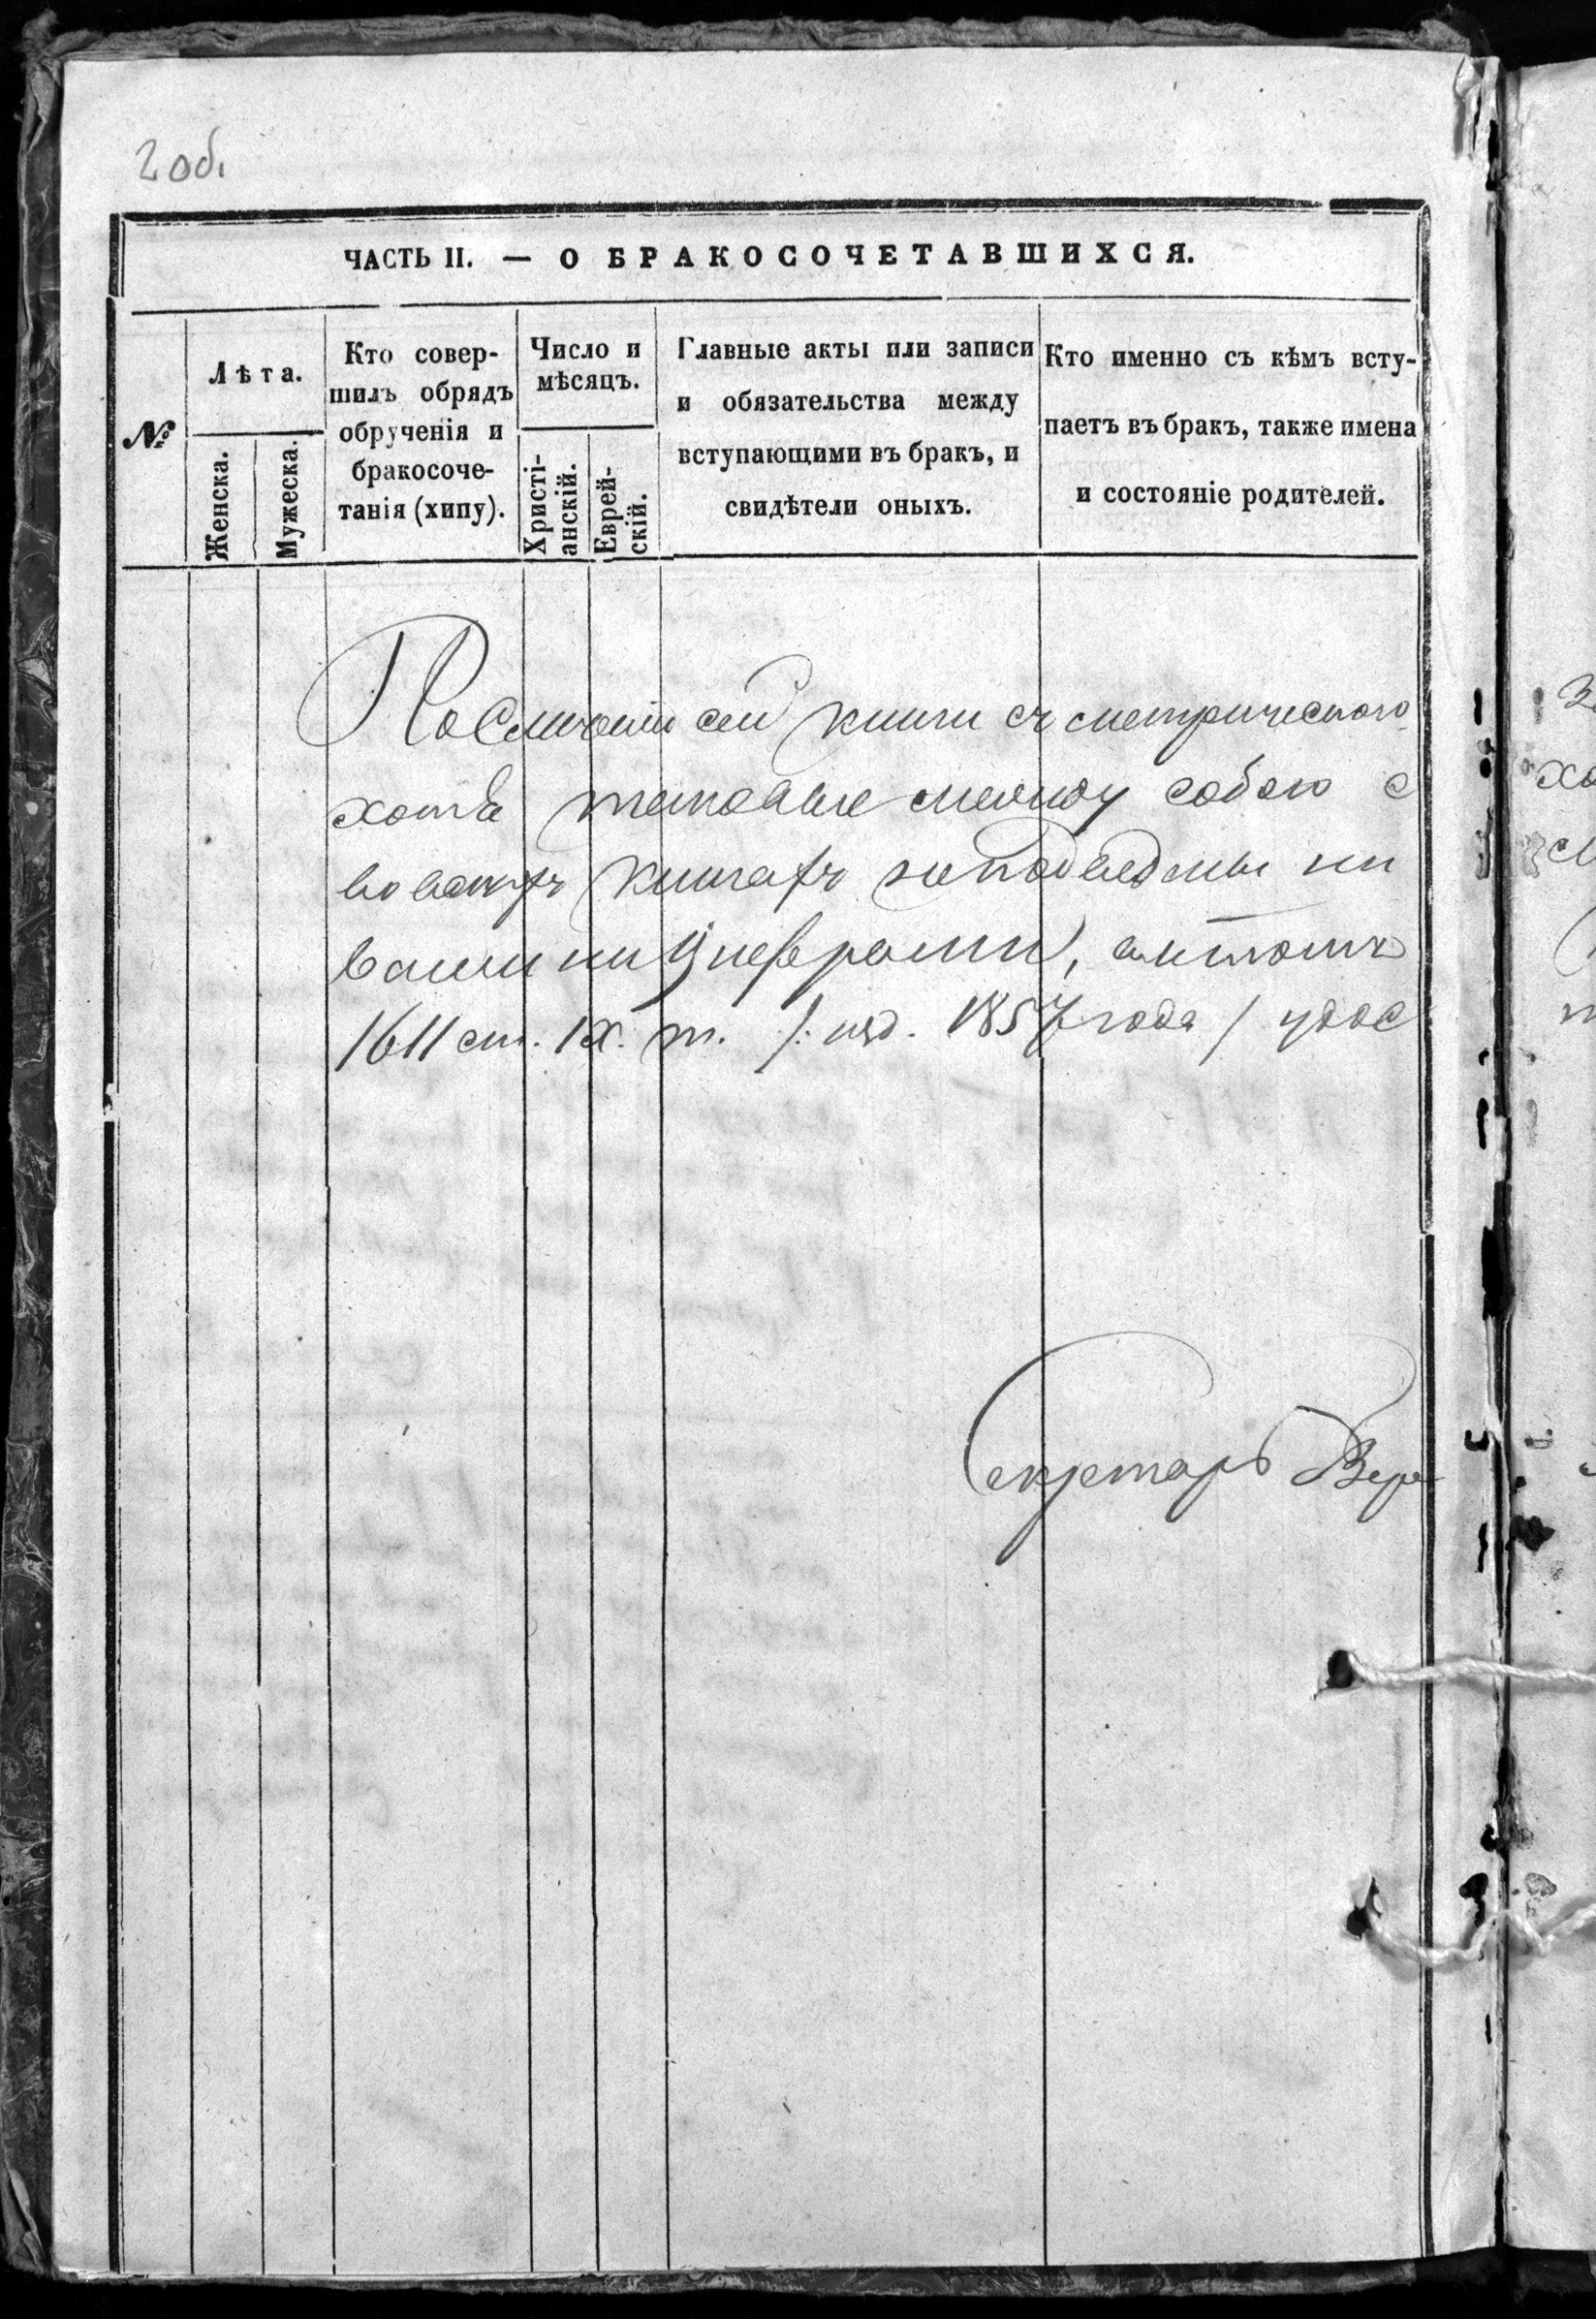 2 об.
ЧАСТЬ II. — О БРАКОСОЧЕТАВШИХСЯ.
№
Лѣта.
Женска.
Мужеска.
Кто совер-
шилъ обрядъ
обрученія и
бракосоче-
танія (хипу).
Число и
мѣсяцъ.
Христі-
анскій.
Еврей-
скій.
Главные акты или записи
и обязательства между
вступающими въ бракъ, и
свидѣтели оныхъ.
Кто именно съ кѣмъ всту-
паетъ въ бракъ, также имена
и состояніе родителей.
По сличеніи сей книги съ метрическою
хотя таковые между собою с
книгахъ ни
ни цыфрами,
1611 ст. IX. т. /: изд. 1857 года / удос
Секретарь Вер